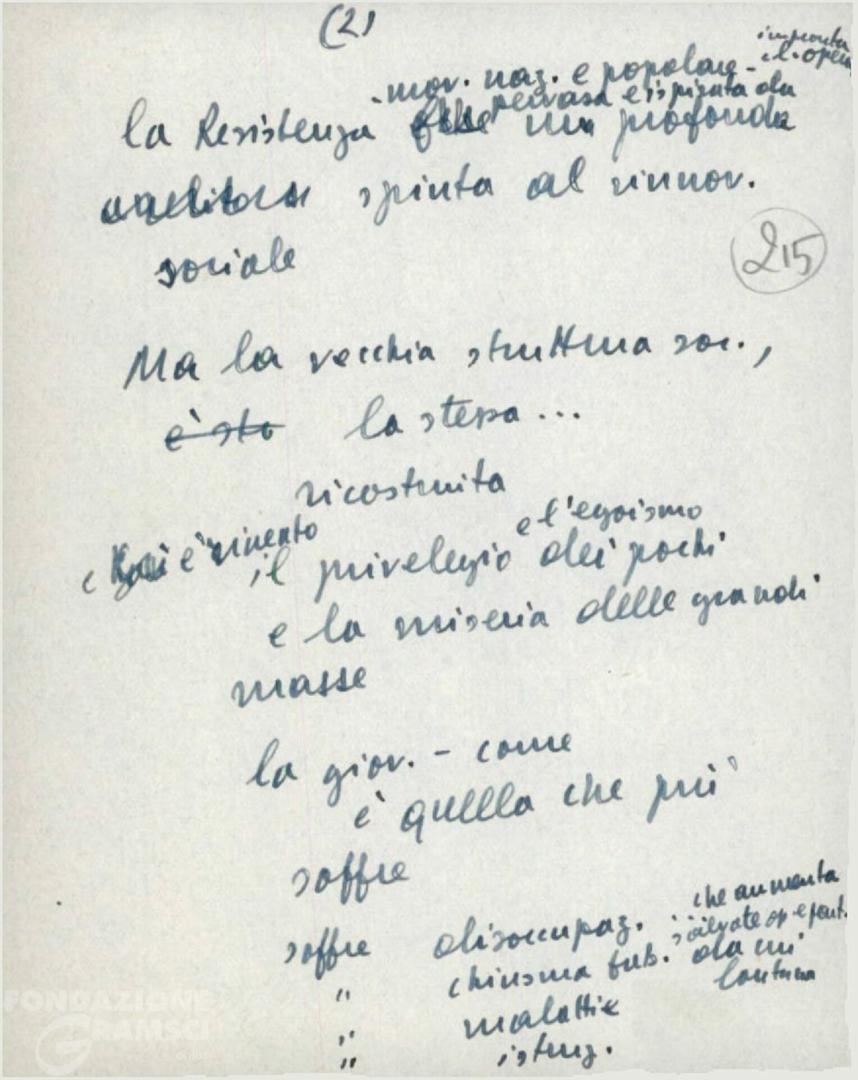 (2)
impronta
- mov. naz. e popolare - cl. oper
pervasa e ispirata da
la Resistenza una profonda
spinta al rinnov.
sociale
215
Ma la vecchia struttura soc.,
è sta la stessa...
ricostruita
e è rinvento e l'egoismo
il privelegio dei pochi
e la miseria delle grandi
masse
la giov. - come
è quella che più
soffre
che aumenta
soffre disoccupaz.
" chiusura fab. da cui
lontana
" malattie
" istruz.
FONDAZIONE
GRAMSCI